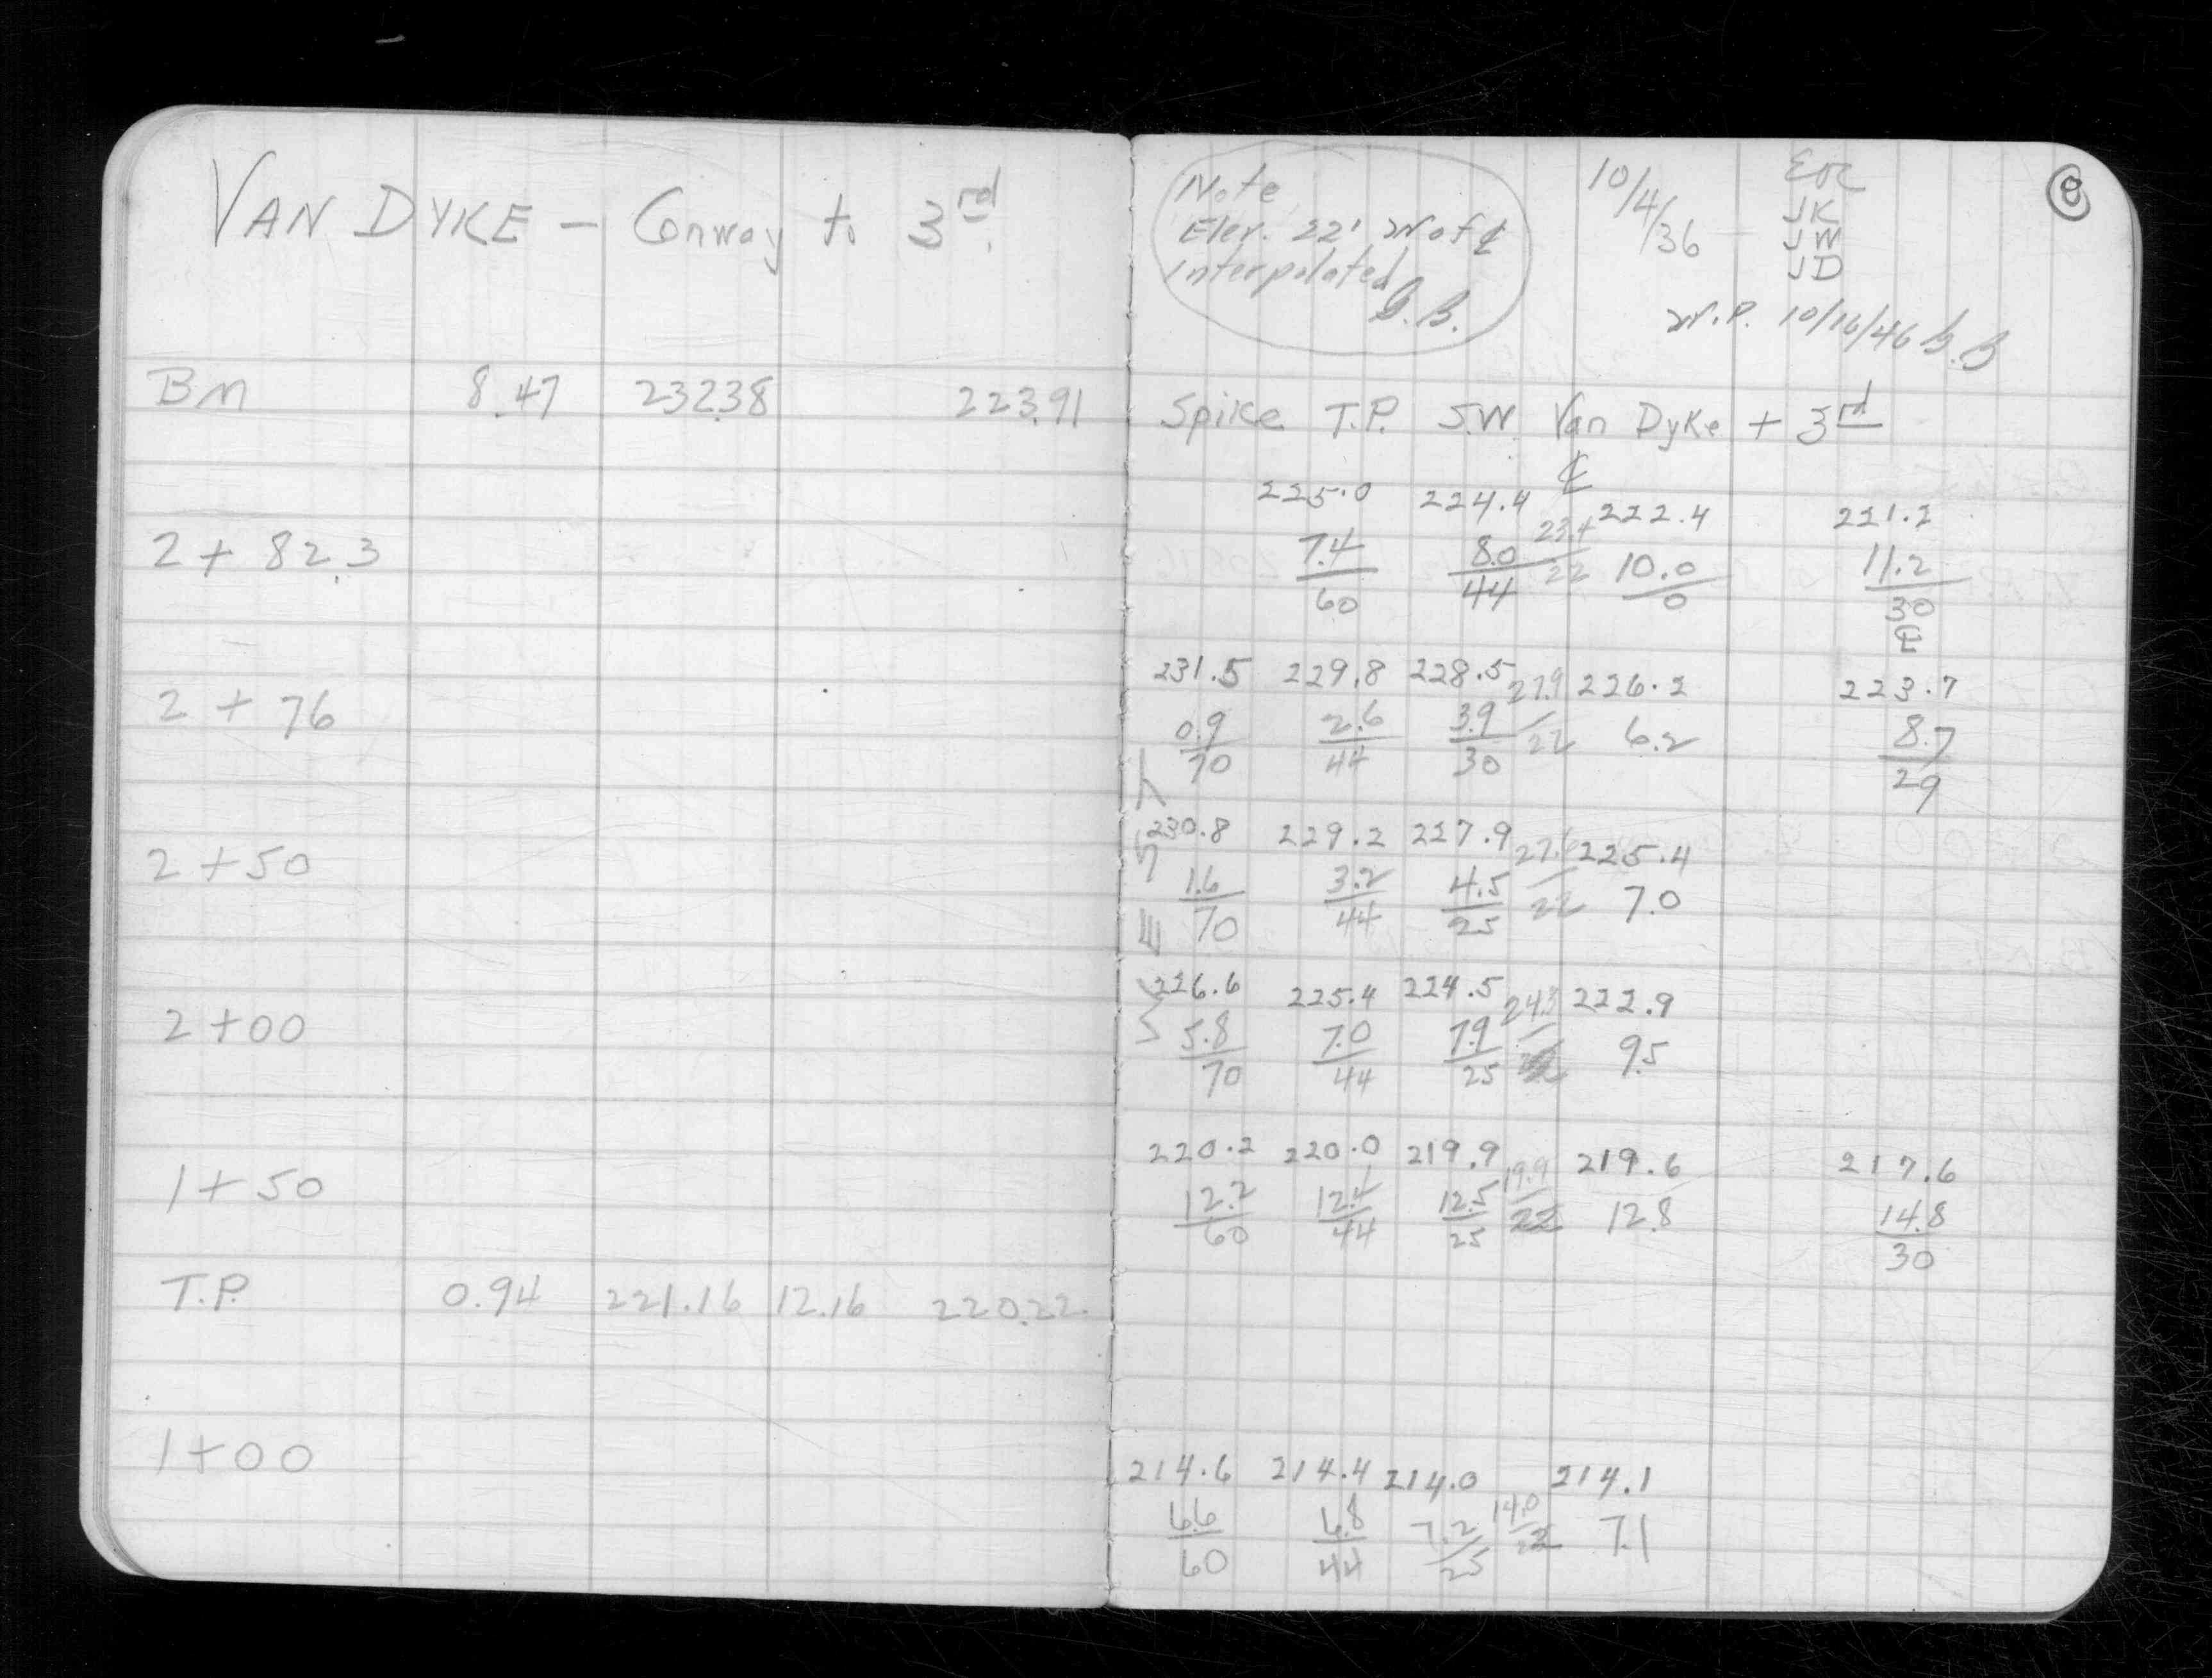 VAN DYKE – Conway to 3rd.
BM 8.47 232.38 223.91
2 + 82.3
2 + 76
2 + 50
2 + 00
1 + 50
T.P. 0.94 221.16 12.16 220.22
1 + 00
Note
Elev. 22' W of ℄
interpolated
10/4/36
JK
JW
JD
10/16/46
Spike T.P. S.W. Van Dyke + 3rd
℄
225.0 224.4 23.4 222.4 221.2
7.4 8.0 22 10.0 11.2
60 44 0 30
℄
231.5 229.8 228.5 27.9 226.2 223.7
0.9 2.6 3.9 22 6.2 8.7
70 44 30 29
230.8 229.2 227.9 27.6 225.4
1.6 3.2 4.5 22 7.0
70 44 25
226.6 225.4 224.5 24.3 222.9
5.8 7.0 7.9 22 9.5
70 44 25
220.2 220.0 219.9 19.9 219.6 217.6
12.2 12.4 12.5 22 12.8 14.8
60 44 25 30
214.6 214.4 214.0 14.0 214.1
6.6 6.8 7.2 22 7.1
60 44 25
WEST